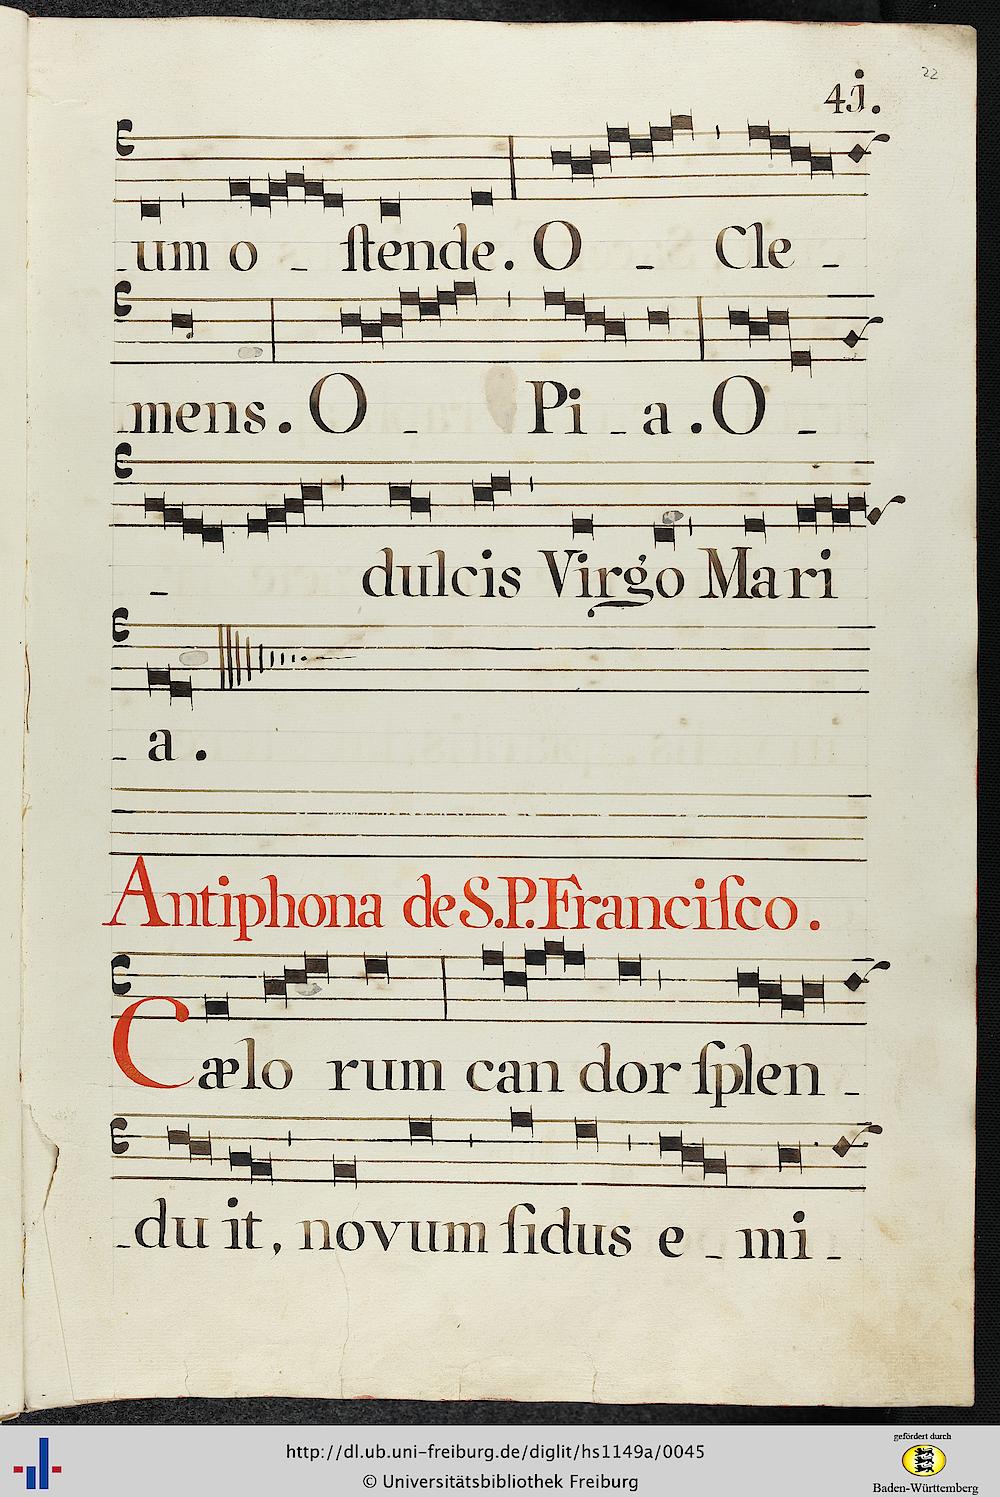 22
41.
-um o - ſtende. O - Cle -
-mens. O - Pi - a. O -
- dulcis Virgo Mari
- a.
Antiphona de S. P. Franciſco.
Cælo rum can dor ſplen -
-du it, novum ſidus e - mi -
http://dl.ub.uni-freiburg.de/diglit/hs1149a/0045
© Universitätsbibliothek Freiburg
gefördert durch
Baden-Württemberg